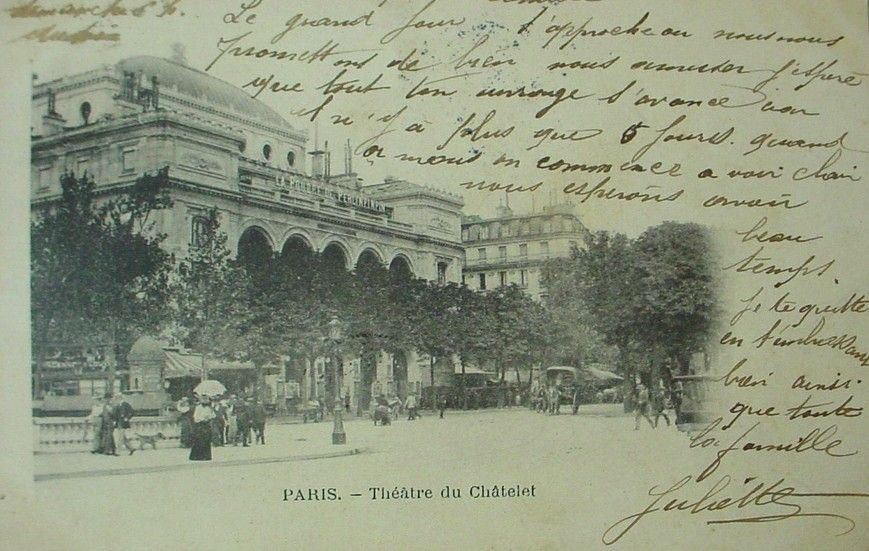 Le grand jour s'approche on nous nous
promettons de bien nous amuser j'espère
que tout ton ouvrage s'avance car
il n'y a plus que 5 jours. quand
on commence a voir clair
nous espérons avoir
beau
temps.
Je te quitte
en t'embrassant
bien ainsi
que toute
la famille
Juliette
LA POUDRE DE PERLINPINPIN
PARIS. — Théâtre du Châtelet